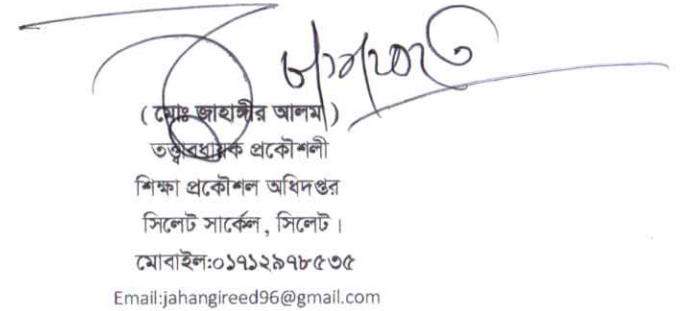 ( মোঃ জাহাঙ্গীর আলম )
তত্ত্বাবধায়ক প্রকৌশলী
শিক্ষা প্রকৌশল অধিদপ্তর
সিলেট সার্কেল, সিলেট ।
মোবাইল:০১৭১২৯৭৮৫৩৫
Email:jahangireed96@gmail.com